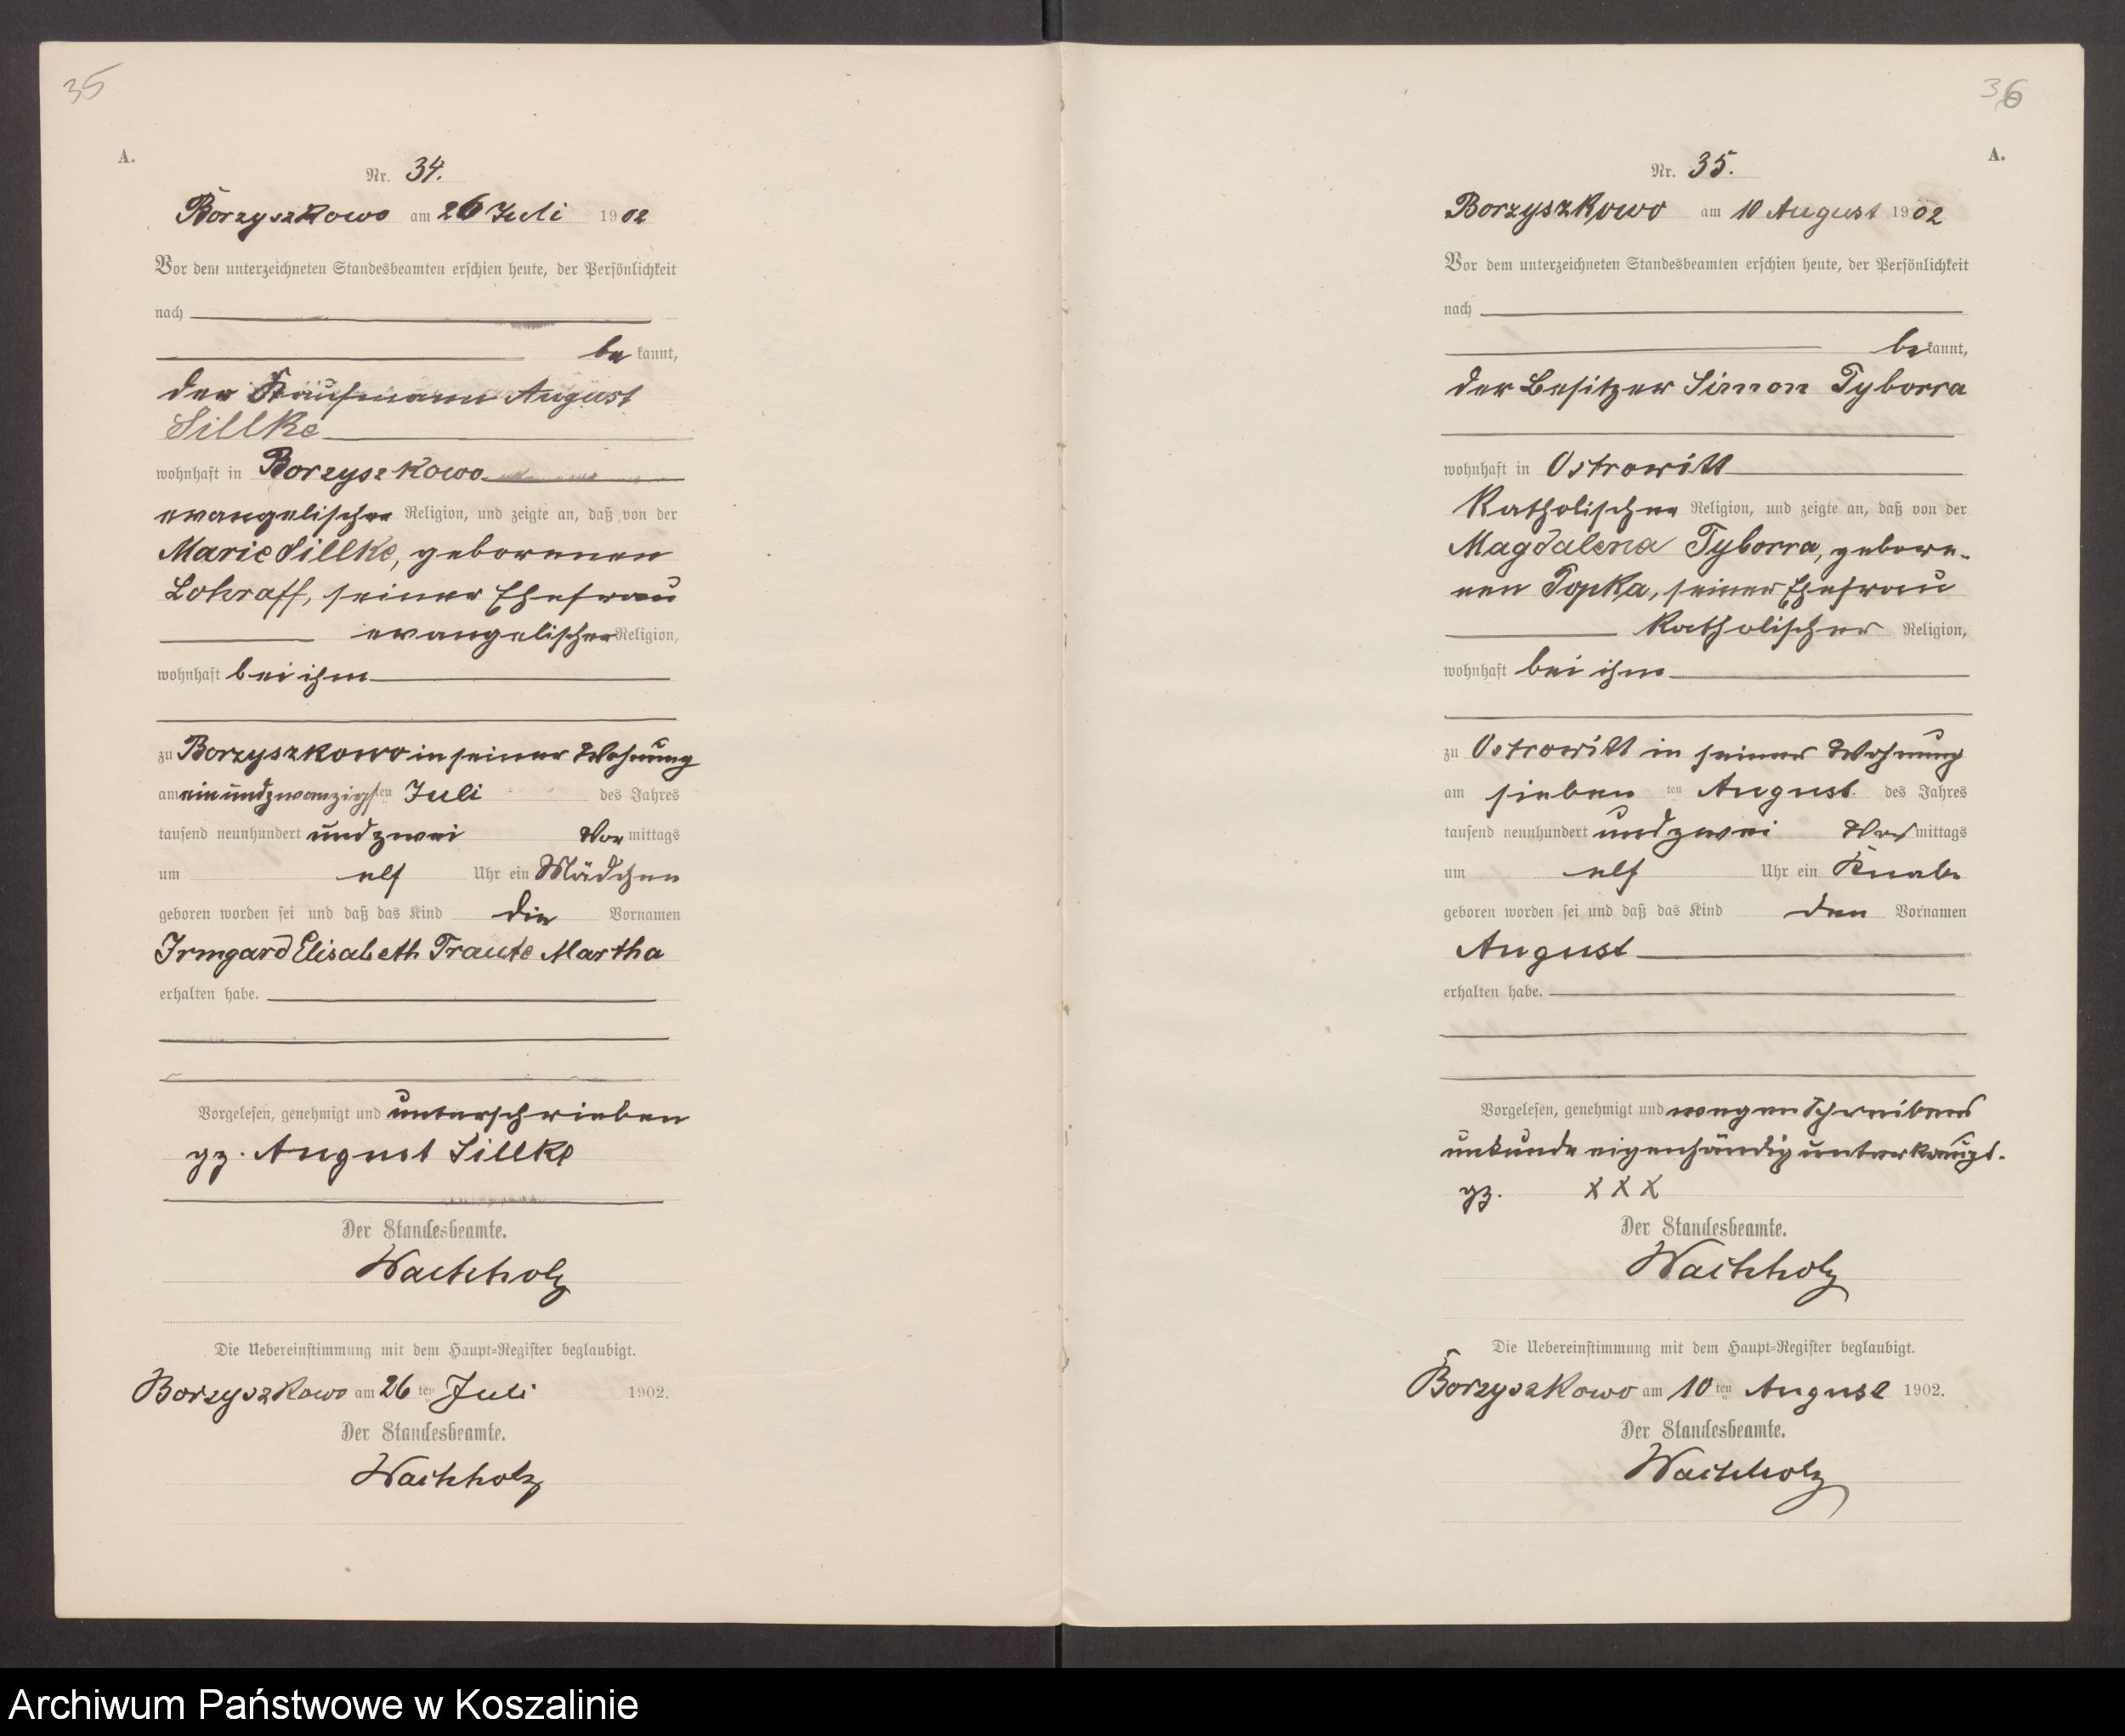 35
A.
Nr. 34.
Borzyszkowo am 26 Juli 1902
Vor dem unterzeichneten Standesbeamten erschien heute, der Persönlichkeit
nach
be kannt,
der Kaufmann August
Sillke
wohnhaft in Borzyszkowo
evangelischer Religion, und zeigte an, daß von der
Marie Sillke, geborenen
Lohraff, seiner Ehefrau
evangelischer Religion,
wohnhaft bei ihm
zu Borzyszkowo in seiner Wohnung
am ein und zwanzigsten Juli des Jahres
tausend neunhundert und zwei Vor mittags
um elf Uhr ein Mädchen
geboren worden sei und daß das Kind die Vornamen
Irmgard Elisabeth Traute Martha
erhalten habe.
Vorgelesen, genehmigt und unterschrieben
gz. August Sillke
Der Standesbeamte.
Wachholz
Die Uebereinstimmung mit dem Haupt-Register beglaubigt.
Borzyszkowo am 26 ten Juli 1902.
Der Standesbeamte.
Wachholz
36
A.
Nr. 35.
Borzyszkowo am 10 August 1902
Vor dem unterzeichneten Standesbeamten erschien heute, der Persönlichkeit
nach
be kannt,
der Besitzer Simon Tyborra
wohnhaft in Ostrowitt
Katholischer Religion, und zeigte an, daß von der
Magdalena Tyborra, gebore-
nen Topka, seiner Ehefrau
Katholischer Religion,
wohnhaft bei ihm
zu Ostrowitt in seiner Wohnung
am sieben ten August des Jahres
tausend neunhundert und zwei Vor mittags
um elf Uhr ein Knabe
geboren worden sei und daß das Kind den Vornamen
August
erhalten habe.
Vorgelesen, genehmigt und wegen Schreibens
unkunde eigenhändig unterkreuzt.
gz. X X X
Der Standesbeamte.
Wachholz
Die Uebereinstimmung mit dem Haupt-Register beglaubigt.
Borzyszkowo am 10 ten August 1902.
Der Standesbeamte.
Wachholz
Archiwum Państwowe w Koszalinie